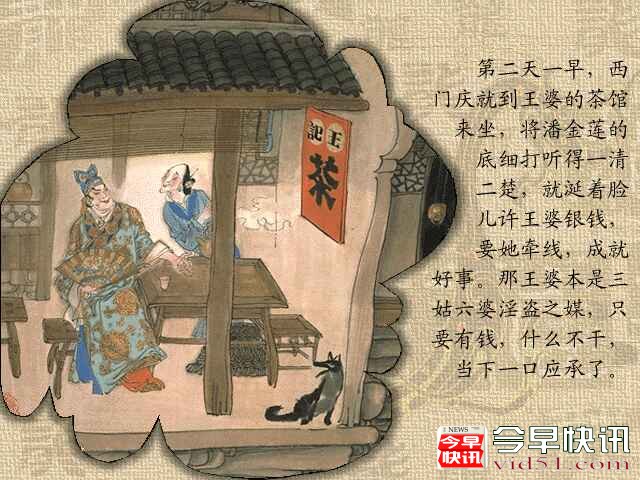 第二天一早，西
门庆就到王婆的茶馆
来坐，将潘金莲的
底细打听得一清
二楚，就涎着脸
儿许王婆银钱，
要她牵线，成就
好事。那王婆本是三
姑六婆淫盗之媒，只
要有钱，什么不干，
当下一口应承了。
王记
茶
NEWS
今早
快讯
今早快讯
vid51.com